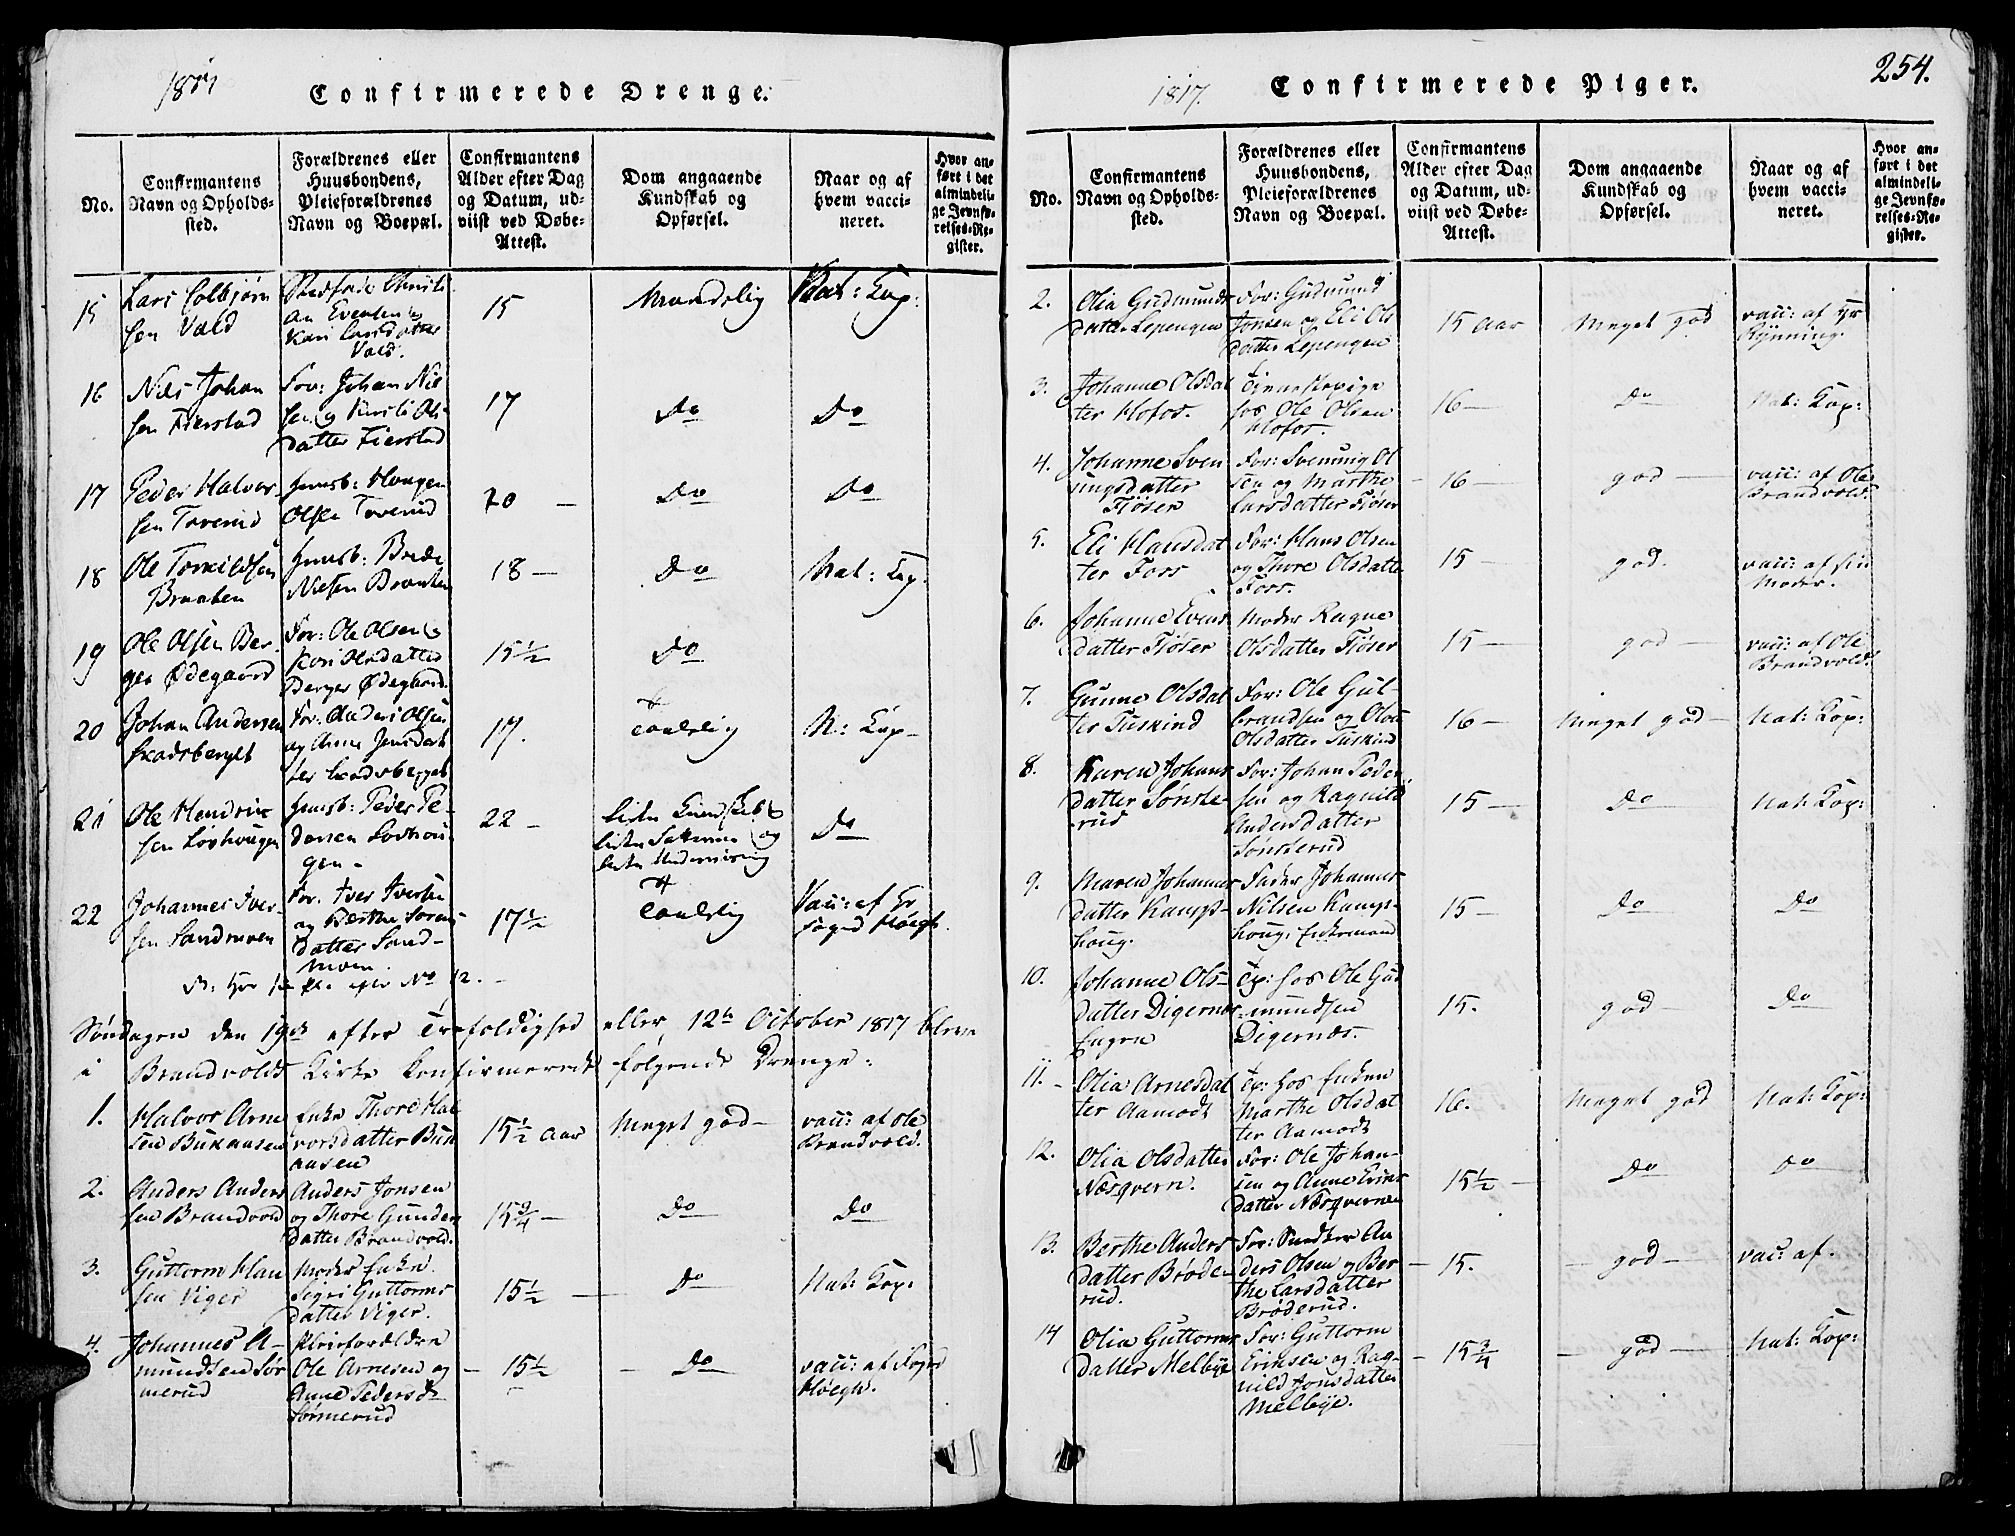 1817
Confirmerede Drenge.
No.
Confirmantens
Navn og Opholds-
sted.
Forældrenes eller
Huusbondens,
Pleieforældrenes
Navn og Boepæl.
Confirmantens
Alder efter Dag
og Datum, ud-
viist ved Døbe-
Attest.
Dom angaaende
Kundskab og
Opførsel.
Naar og af
hvem vacci-
neret.
Hvor an-
ført i det
almindeli-
ge Jevnfø-
relses-Re-
gister.
15
Lars Colbjørn
sen Vald
Stedfade Christi
an Evensen og
Kari Larsdatter
Vald.
15
Maadelig
Nat: Kop:
16
Niels Johan
sen Fierstad
For: Johan Nil
sen og Kirsti Ols
datter Fierstad
17
Do
Do
17
Peder Halvor
sen Toverud
Huusb: Haagen
Olsen Toverud
20 —
Do
Do
18
Ole Torkildsen
Braaten
Huusb: Brede
Nielsen Braaten
18 —
Do
Nat: Kop:
19
Ole Olsen Ber
ger Ødegaard
For: Ole Olsen og
Kari Olsdatter
Berger Ødegaard.
15½
Do
20
Johan Andersen
Skadsberget
For: Anders Olsen
og Anne Jensdat
ter Skadsberget
17.
Taalelig
N: Kop-
21
Ole Hendrik
sen Løvhougen
Huusb: Peder Pe-
dersen Løvhou-
gen -
22 -
liden Kundskab og
liden og
liden Underviisning
Do
22
Johannes Iver-
sen Sandmoen
For: Iver Iversen
og Berthe Soren
datter Sand-
moen.
17½
Taalelig
Vacc: af Hr
Foged Høegh.
efter No 12. -
Søndagen den 19de efter Trefoldighed eller 12te October 1817 bleve
i Brandvolds Kirke Confirmerede følgende Drenge:
1.
Halvor Arne
sen Bukaasen
Enke Thore Hal
vorsdatter Buk
aasen
15½ Aar
Meget god -
vacc: af Ole
Brandvold.
2.
Anders Anders
sen Brandvold
Anders Jonsen
og Thore Gunder
datter Brandvold.
15¾ -
Do
Do
3.
Guttorm Han
sen Viger
Moder Enke
Sigri Guttorms
datter Viger.
15½
Do
Nat: Kop:
4.
Johannes A-
mundsen Sør
merud
Pleieforældre
Ole Arnesen og
Anne Pedersd
Sørmerud
15½
Do
vacc: af Foged
Høegh.
1817.
Confirmerede Piger.
254.
No.
Confirmantens
Navn og Opholds-
sted.
Forældrenes eller
Huusbondens,
Pleieforældrenes
Navn og Boepæl.
Confirmantens
Alder efter Dag
og Datum, ud-
viist ved Døbe-
Attest.
Dom angaaende
Kundskab og
Opførsel.
Naar og af
hvem vacci-
neret.
Hvor an-
ført i det
almindeli-
ge Jevnfø-
relses-Re-
gister.
2.
Olia Gudmunds
datter Lepengen
For: Gudmund
Jonsen og Eli Ols
datter Lepengen
15 Aar
Meget god
vacc: af Hr
Rynning.
3.
Johanne Olsdat
ter Hofos.
Tienestepige
hos Ole Olsen
Hofos.
16 —
Do
Nat: Kop:
4.
Johanne Sven
ungsdatter
Fiøser
For: Svenung Ol
sen og Marthe
Larsdatter Fiøser
16 —
god —
vacc: af Ole
Brandvold.
5.
Eli Hansdat
ter Foss
For: Hans Olsen
og Thore Olsdatte
Foss.
15 —
god.
vacc: af sin
Moder.
6.
Johanne Evens
datter Fiøser
Moder Ragne
Olsdatter Fiøser
15 —
god —
vacc: af Ole
Brandvold.
7.
Gunne Olsdat
ter Tuskind
For: Ole Gul-
brandsen og Olea
Olsdatter Tuskind
16 —
Meget god —
Nat: Kop:
8.
Karen Johans
datter Sønste-
rud
For: Johan Peder
sen og Ragnild
Andersdatter
Sønsterud
15 —
Do
Nat: Kop:
9.
Maren Johannes
datter Kamps-
houg.
Fader Johannes
Nilsen Kamps-
houg, Enkemand
15 —
Do
Do
10.
Johanne Ols-
datter Digernæs
Engen
Tp: hos Ole Gud
mundsen
Digernæs.
15.
god —
Do
11. -
Olia Arnesdat
ter Aamodt
Tp: hos Enken
Marthe Olsdat
ter Aamodt
16.
Meget god
Nat: Kop:
12.
Olia Olsdatter
Næsqvern.
For: Ole Johan-
sen og Anne Erics
datter Næsqvernen
15½ —
Do
Do
13.
Berthe Anders
datter Brøde-
rud.
For: Snedker An
ders Olsen og Ber
the Larsdatter
Brøderud.
15.
god —
vac: af.
14
Olia Guttorms
datter Melbye
For: Guttorm
Ericksen og Rag-
nild Jonsdatter
Melbye.
15¾
god —
Nat: Kop: